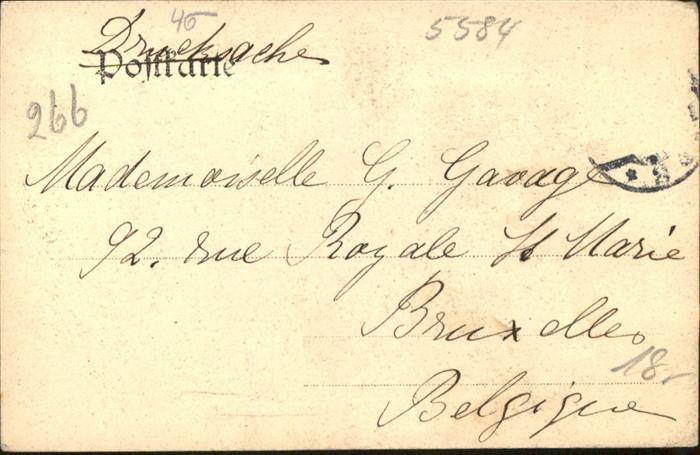 45
5584
Drucksache
Postkarte
266
Mademoiselle G. Gavage
92. rue Royale St Marie
Bruxelles
18.-
Belgique